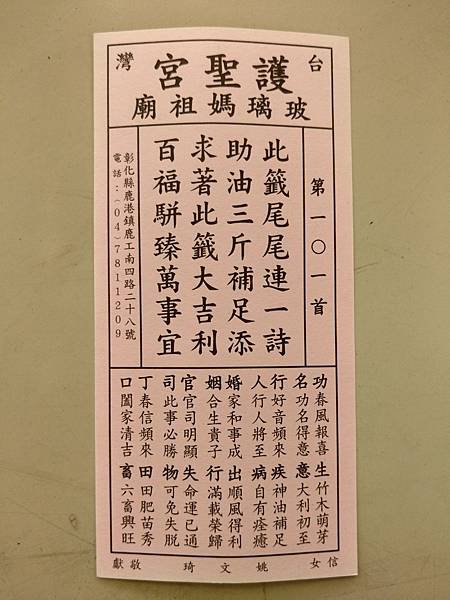 台灣
護聖宮
玻璃媽祖廟
第一〇一首
此籤尾尾連一詩
助油三斤補足添
求著此籤大吉利
百福駢臻萬事宜
彰化縣鹿港鎮鹿工南四路二十八號
電話:(04)7811209
功春風報喜 生竹木萌芽
名功名得意 意大利初至
行好音頻來 疾神油補足
人行人將至 病自有痊癒
婚家和事成 出順風得利
姻合生貴子 行滿載榮歸
官官司明顯 失命運已通
司此事必勝 物可免失脫
丁春信頻來 田田肥苗秀
口闔家清吉 畜六畜興旺
信女 姚文琦 敬獻